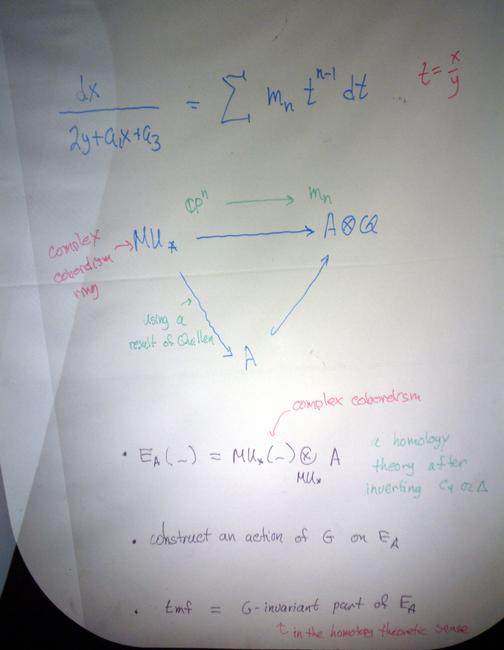 dx / (2y+a₁x+a₃) = Σ mₙ tⁿ⁻¹ dt ... t = x/y
ℂPⁿ ⟶ mₙ
complex cobordism ring → MU* ⟶ A⊗ℚ
using a
result of Quillen
A
complex cobordism
• E_A(–) = MU*(–) ⊗ A
MU*
a homology
theory after
inverting C₄ or Δ
• construct an action of G on E_A
• tmf = G-invariant part of E_A
↑ in the homology theoretic sense